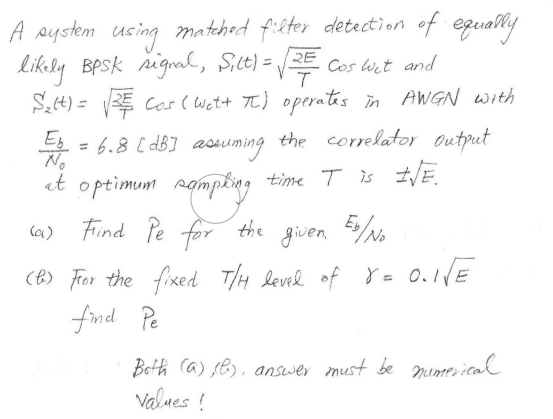 A system using matched filter detection of equally
likely BPSK signal, S₁(t) = √(2E/T) Cos Wct and
S₂(t) = √(2E/T) Cos (Wct + π) operates in AWGN with
Eb/No = 6.8 [dB] assuming the correlator output
at optimum sampling time T is ±√E.
(a) Find Pe for the given Eb/No
(b) For the fixed T/H level of γ = 0.1√E
find Pe
Both (a), (b), answer must be numerical
Values !